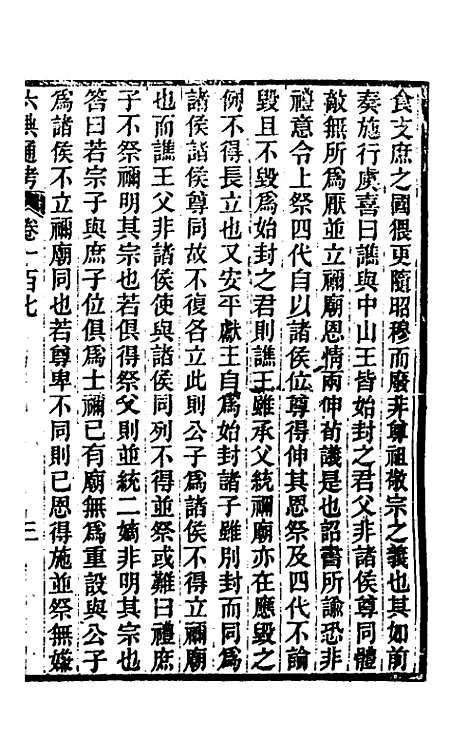 食支庶之國猥更隨昭穆而廢非尊祖敬宗之義也其如前
奏施行虞喜曰譙與中山王皆始封之君父非諸侯尊同體
敵無所爲厭並立禰廟恩情兩伸荀議是也詔書所諭恐非
禮意令上祭四代自以諸侯位尊得伸其恩祭及四代不論
毀且不毀爲始封之君則譙王雖承父統禰廟亦在應毀之
例不得長立也又安平獻王自爲始封諸子雖別封而同爲
諸侯諸侯尊同故不復各立此則公子爲諸侯不得立禰廟
也而譙王父非諸侯使與諸侯同列不得並祭或難曰禮庶
子不祭禰明其宗也若俱得祭父則並統二嫡非明其宗也
答曰若宗子與庶子位俱爲士禰已有廟無爲重設與公子
爲諸侯不立禰廟同也若尊卑不同則已恩得施並祭無嫌
六典通考 卷一百七 三